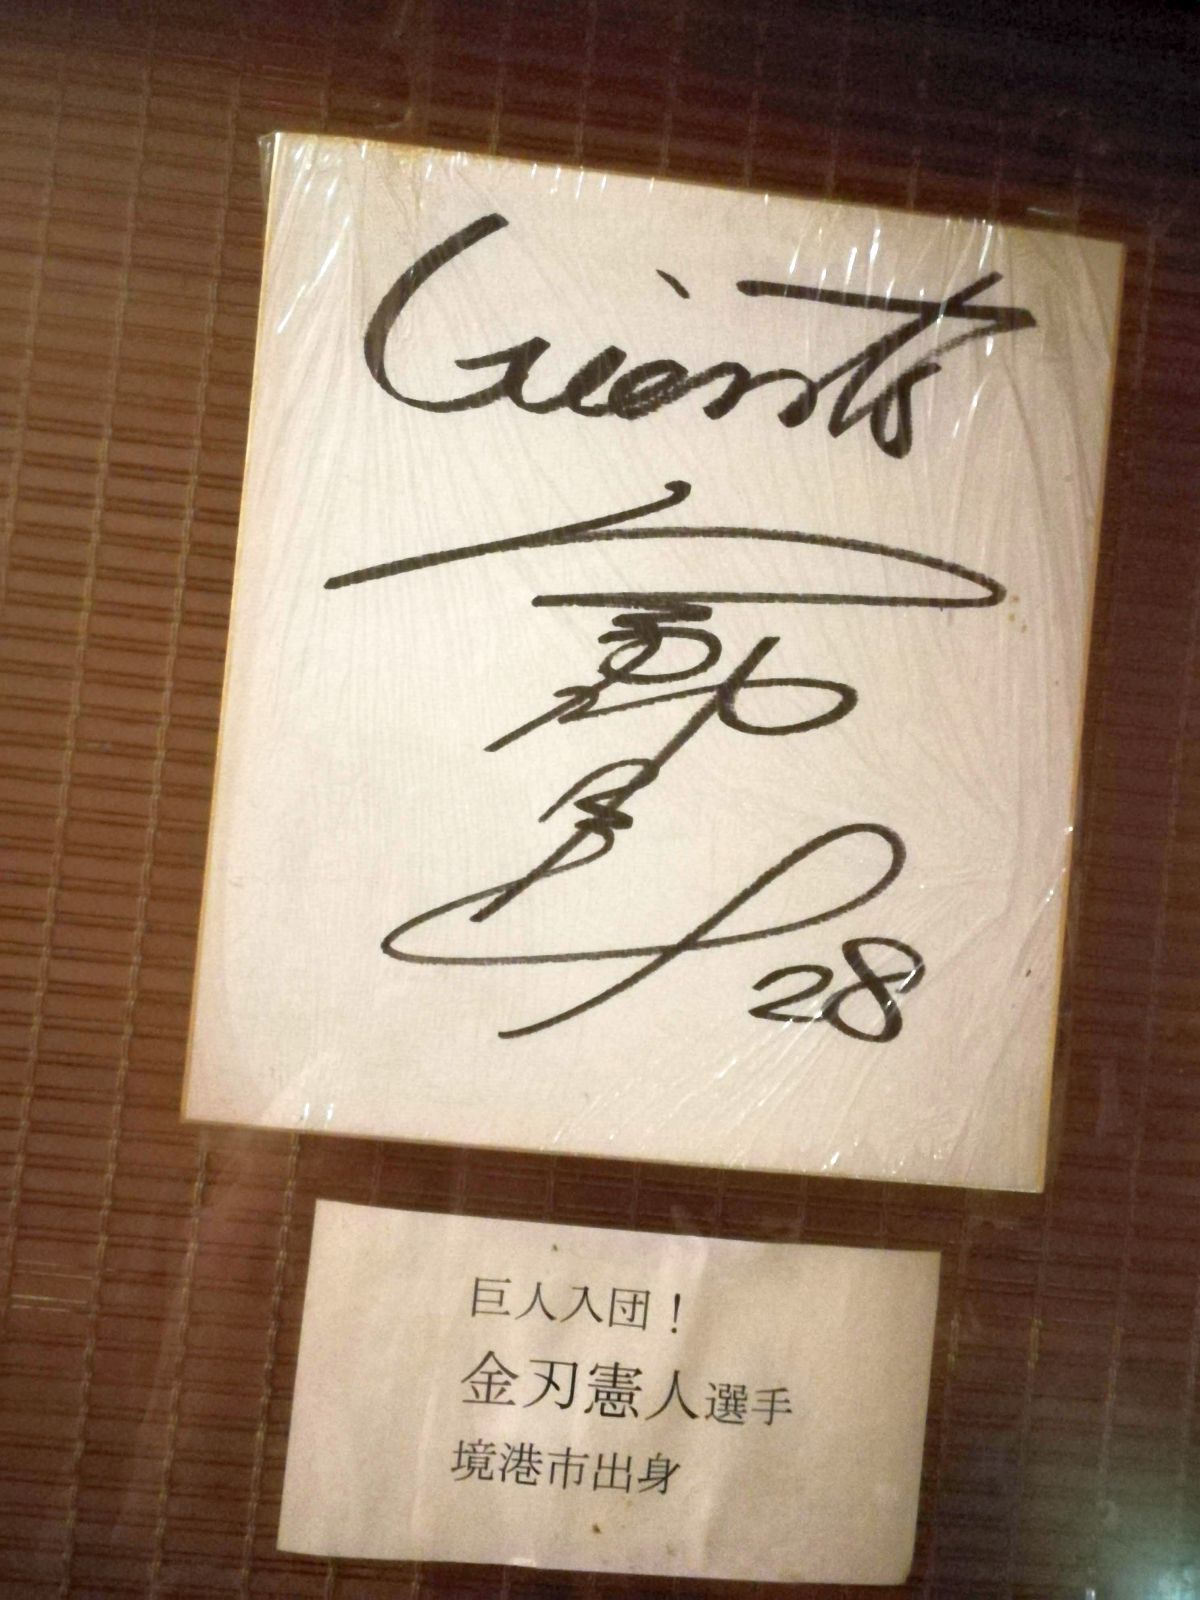 Giants
28
巨人入団！
金刃憲人選手
境港市出身